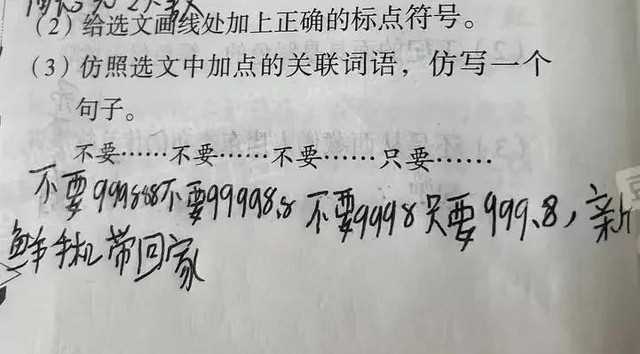 (2)给选文画线处加上正确的标点符号。
(3)仿照选文中加点的关联词语，仿写一个
句子。
不要……不要……不要……只要……
不要999888不要99998.8不要9998只要999.8，新
鲜手机带回家